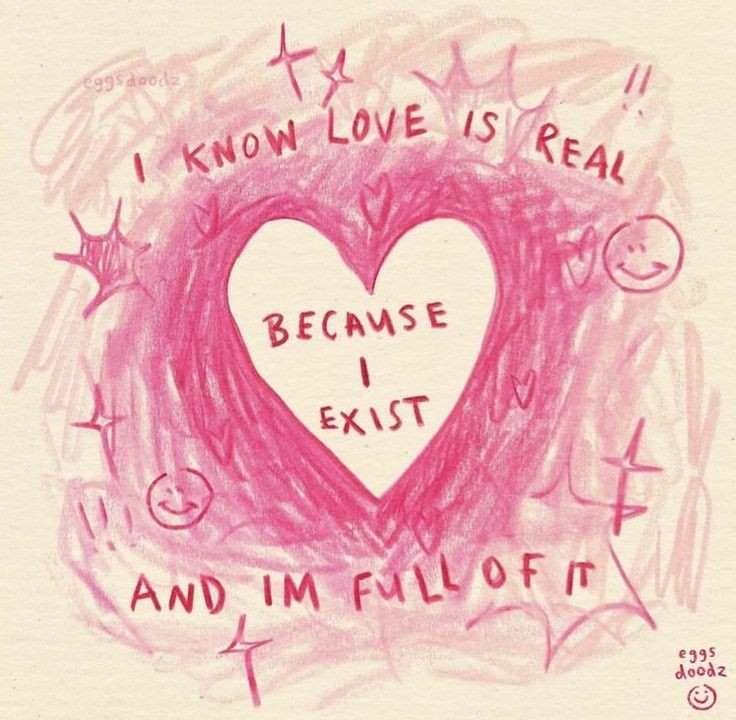 eggsdoodz
!!
I KNOW LOVE IS REAL
BECAUSE
I
EXIST
!!!
AND IM FULL OF IT
eggs
doodz